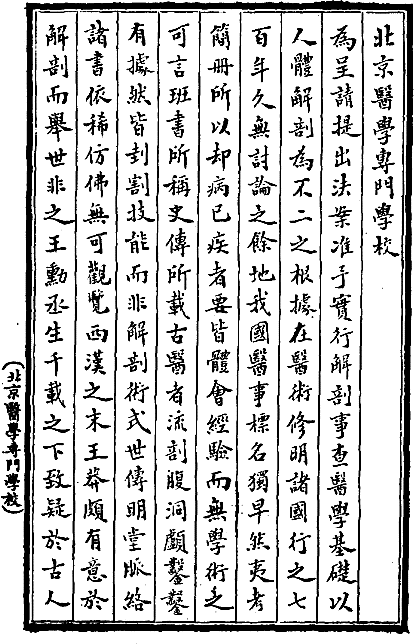 北京醫學專門學校
為呈請提出法案准予實行解剖事查醫學基礎以
人體解剖為不二之根據在醫術修明諸國行之七
百年久無討論之餘地我國醫事標名獨早然夷考
簡冊所以却病已疾者要皆體會經驗而無學術之
可言班書所稱史傳所載古醫者流剖腹洞顱鑿鑿
有據然皆刲割技能而非解剖術式世傳明堂脈絡
諸書依稀仿佛無可觀覽西漢之末王莽頗有意於
解剖而舉世非之王勳丞生千載之下致疑於古人
（北京醫學專門學校）